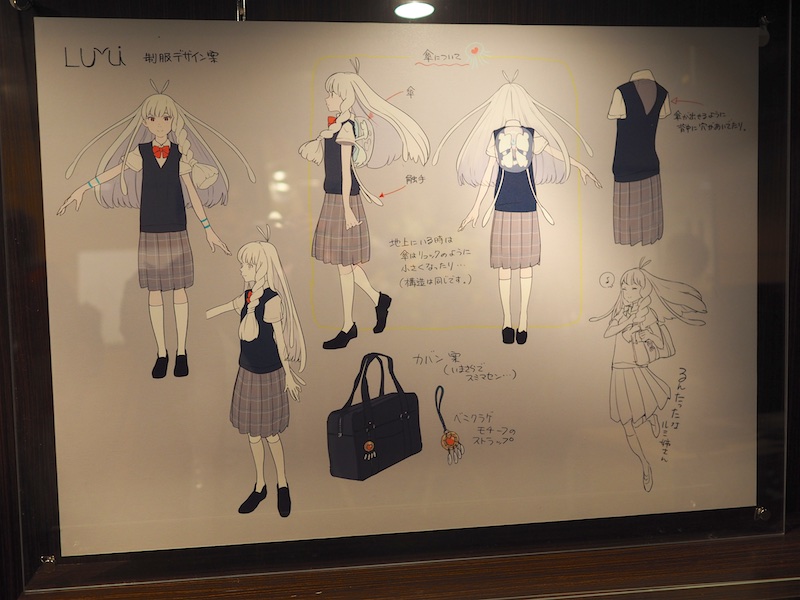 LUMi 制服デザイン案
傘について
傘
触手
地上にいる時は
傘はリュックのように
小さくなったり…
(構造は同じです。)
傘が出せるように
背中に穴があいてたり。
カバン案
(いまさらで
スミマセン…)
ベニクラゲ
モチーフの
ストラップ
るんたったな
ルミ姉さん